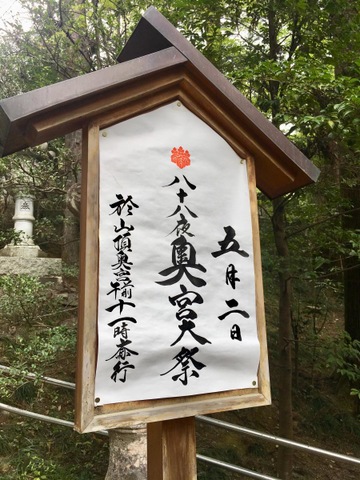 五月二日
八十八夜奥宮大祭
於山頂奥宮午前十一時斎行